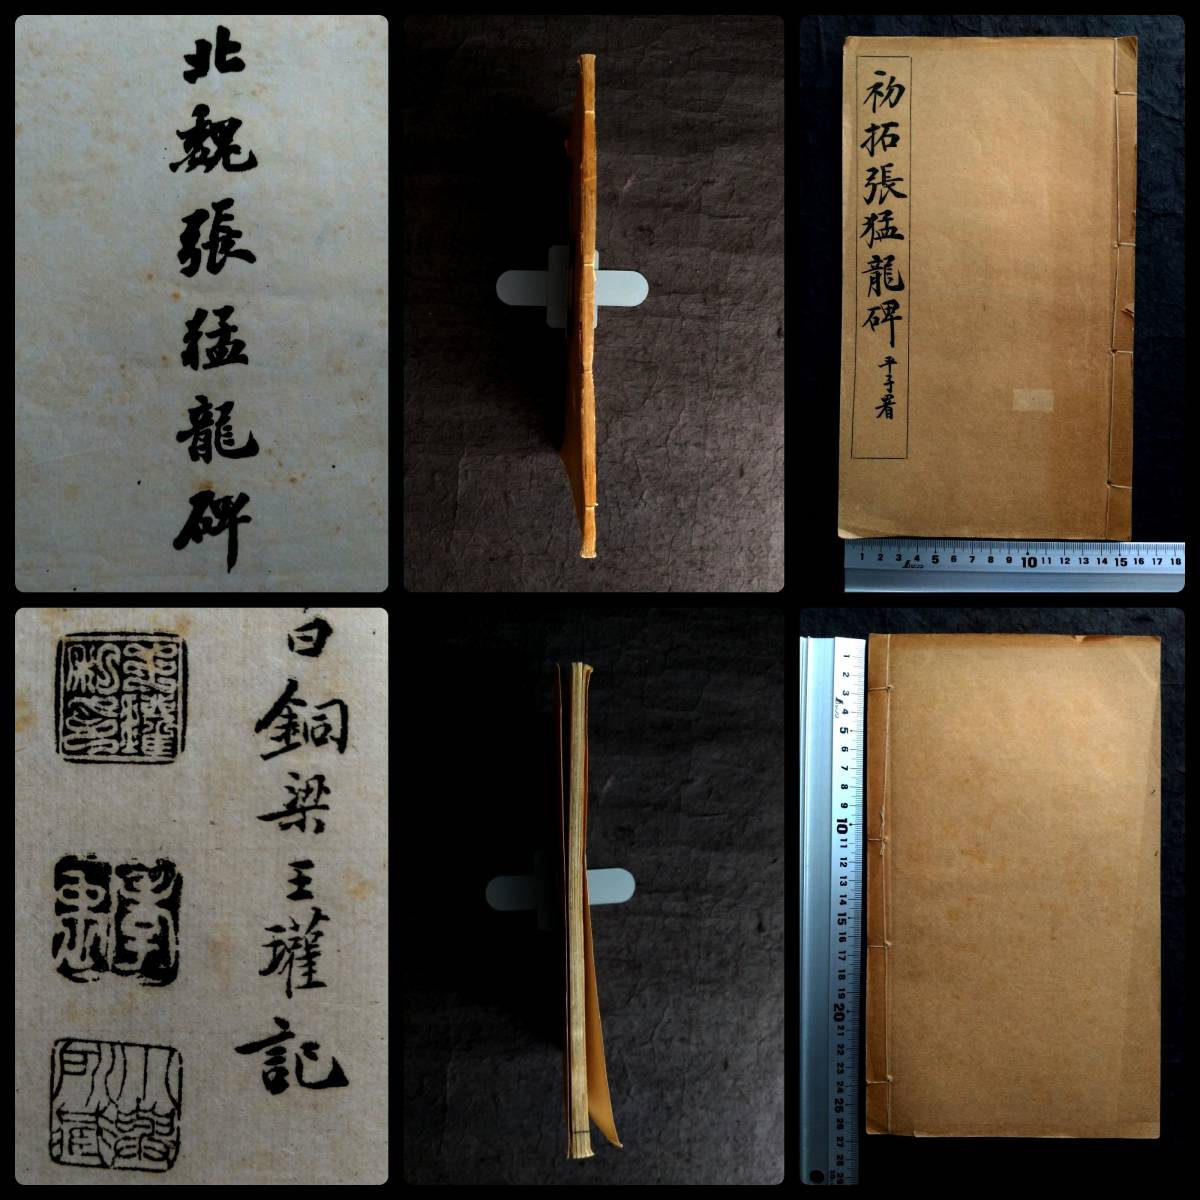 北魏張猛龍碑
初拓張猛龍碑
平子署
1 2 3 4 5 6 7 8 9 10 11 12 13 14 15 16 17 18
日銅梁王瓘記
1 2 3 4 5 6 7 8 9 10 11 12 13 14 15 16 17 18 19 20 21 22 23 24 25 26 27 28 29